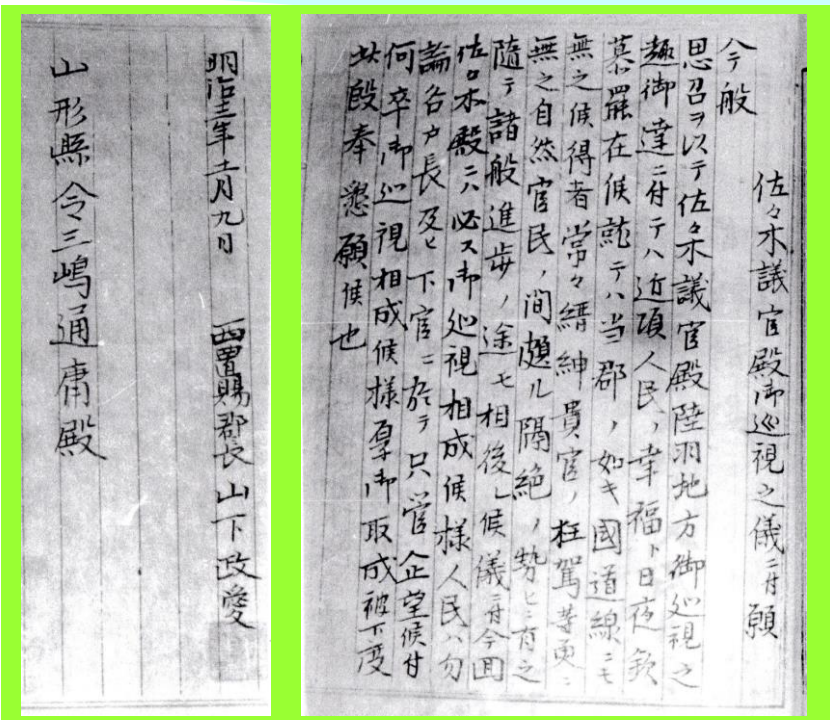 佐々木議官殿御巡視之儀ニ付願
今般
思召ヲ以テ佐々木議官殿陸羽地方御巡視之
趣御達ニ付テハ近頃人民ノ幸福ト日夜欽
慕罷在候就テハ当郡ノ如キ國道線ニモ
無之候得者常々縉紳貴官ノ枉駕等更ニ
無之自然官民ノ間頗ル隔絶ノ勢ヒニ有之
随テ諸般進歩ノ途モ相後レ候儀ニ付今回
佐々木殿ニハ必ス御巡視相成候様人民ハ勿
論各戸長及ヒ下官ニ於テ只管企望候付
何卒御巡視相成候様厚御取成被下度
此段奉懇願候也
明治三年十一月九日 西置賜郡長山下政愛
山形縣令三嶋通庸殿